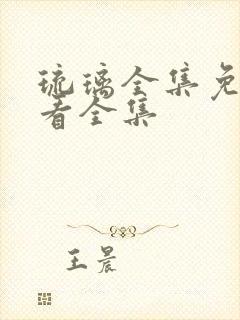 琉璃全集免
看全集
王晨